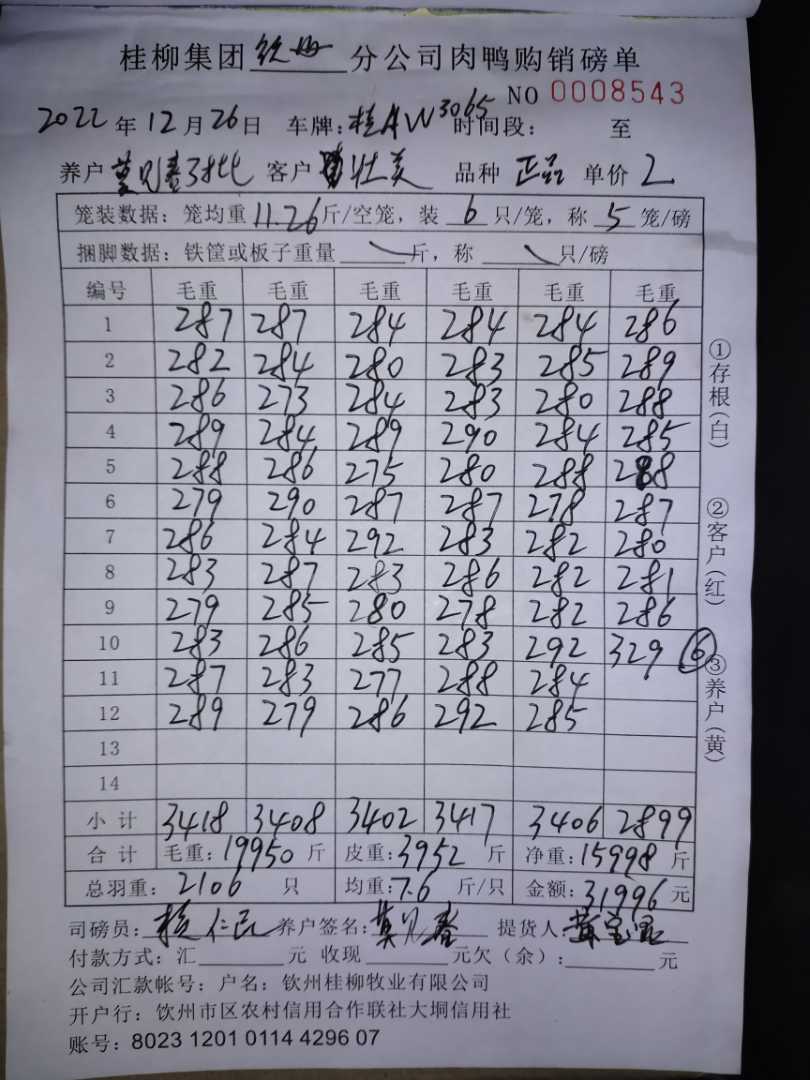 桂柳集团 钦州 分公司肉鸭购销磅单
NO 0008543
2022 年 12 月 26 日 车牌：桂AW3065 时间段： 至
养户 莫兄春 客户 壮美 品种 正品 单价 2
笼装数据：笼均重 11.26 斤/空笼，装 6 只/笼，称 5 笼/磅
捆脚数据：铁筐或板子重量 斤，称 只/磅
编号 毛重 毛重 毛重 毛重 毛重 毛重
1 287 287 284 284 284 286
2 282 284 280 283 285 289
3 286 273 284 283 280 288
4 289 284 289 290 284 285
5 288 286 275 280 288 288
6 279 290 287 287 278 287
7 286 284 292 283 282 280
8 283 287 283 286 282 281
9 279 285 280 278 282 286
10 283 286 285 283 292 329 ⑥
11 287 283 277 288 284
12 289 279 286 292 285
13
14
小计 3418 3408 3402 3417 3406 2899
合计 毛重：19950 斤 皮重：3952 斤 净重：15998 斤
总羽重：2106 只 均重：7.6 斤/只 金额：31996 元
司磅员： 养户签名：莫兄春 提货人：
付款方式：汇 元 收现 元欠（余）： 元
公司汇款帐号：户名：钦州桂柳牧业有限公司
开户行：钦州市区农村信用合作联社大垌信用社
账号：8023 1201 0114 4296 07
①存根（白） ②客户（红） ③养户（黄）